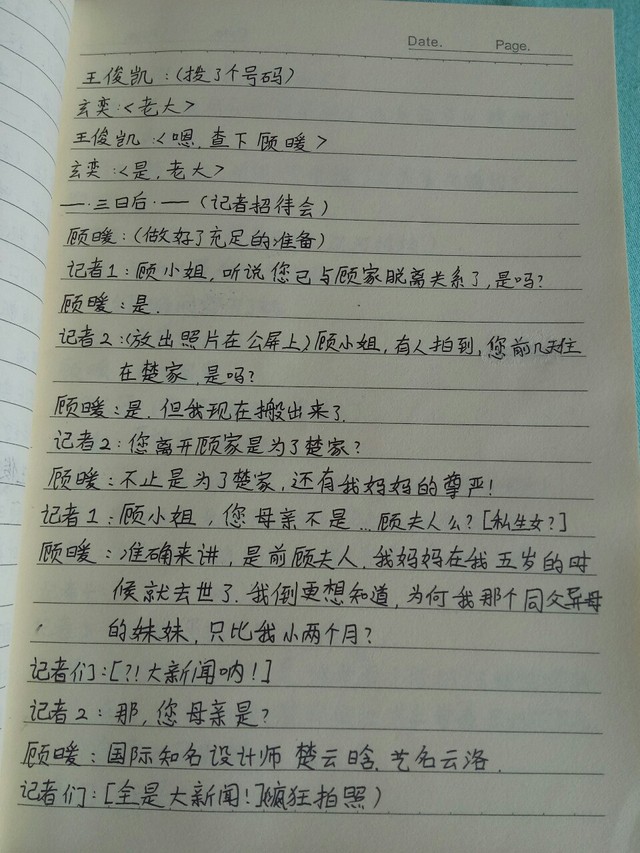 Date. Page.
王俊凯:(拨了个号码)
玄奕:<老大>
王俊凯:<嗯,查下顾暖>
玄奕:<是,老大>
—·三日后·—(记者招待会)
顾暖:(做好了充足的准备)
记者1:顾小姐,听说您已与顾家脱离关系了,是吗?
顾暖:是.
记者2:(放出照片在公屏上)顾小姐,有人拍到,您前几天住
在楚家,是吗?
顾暖:是.但我现在搬出来了.
记者2:您离开顾家是为了楚家?
顾暖:不止是为了楚家,还有我妈妈的尊严!
记者1:顾小姐,您母亲不是...顾夫人么?[私生女?]
顾暖:准确来讲,是前顾夫人.我妈妈在我五岁的时
候就去世了.我倒更想知道,为何我那个同父异母
的妹妹,只比我小两个月?
记者们:[?!大新闻呐!]
记者2:那,您母亲是?
顾暖:国际知名设计师 楚云晗.艺名云洛.
记者们:[全是大新闻!](疯狂拍照)